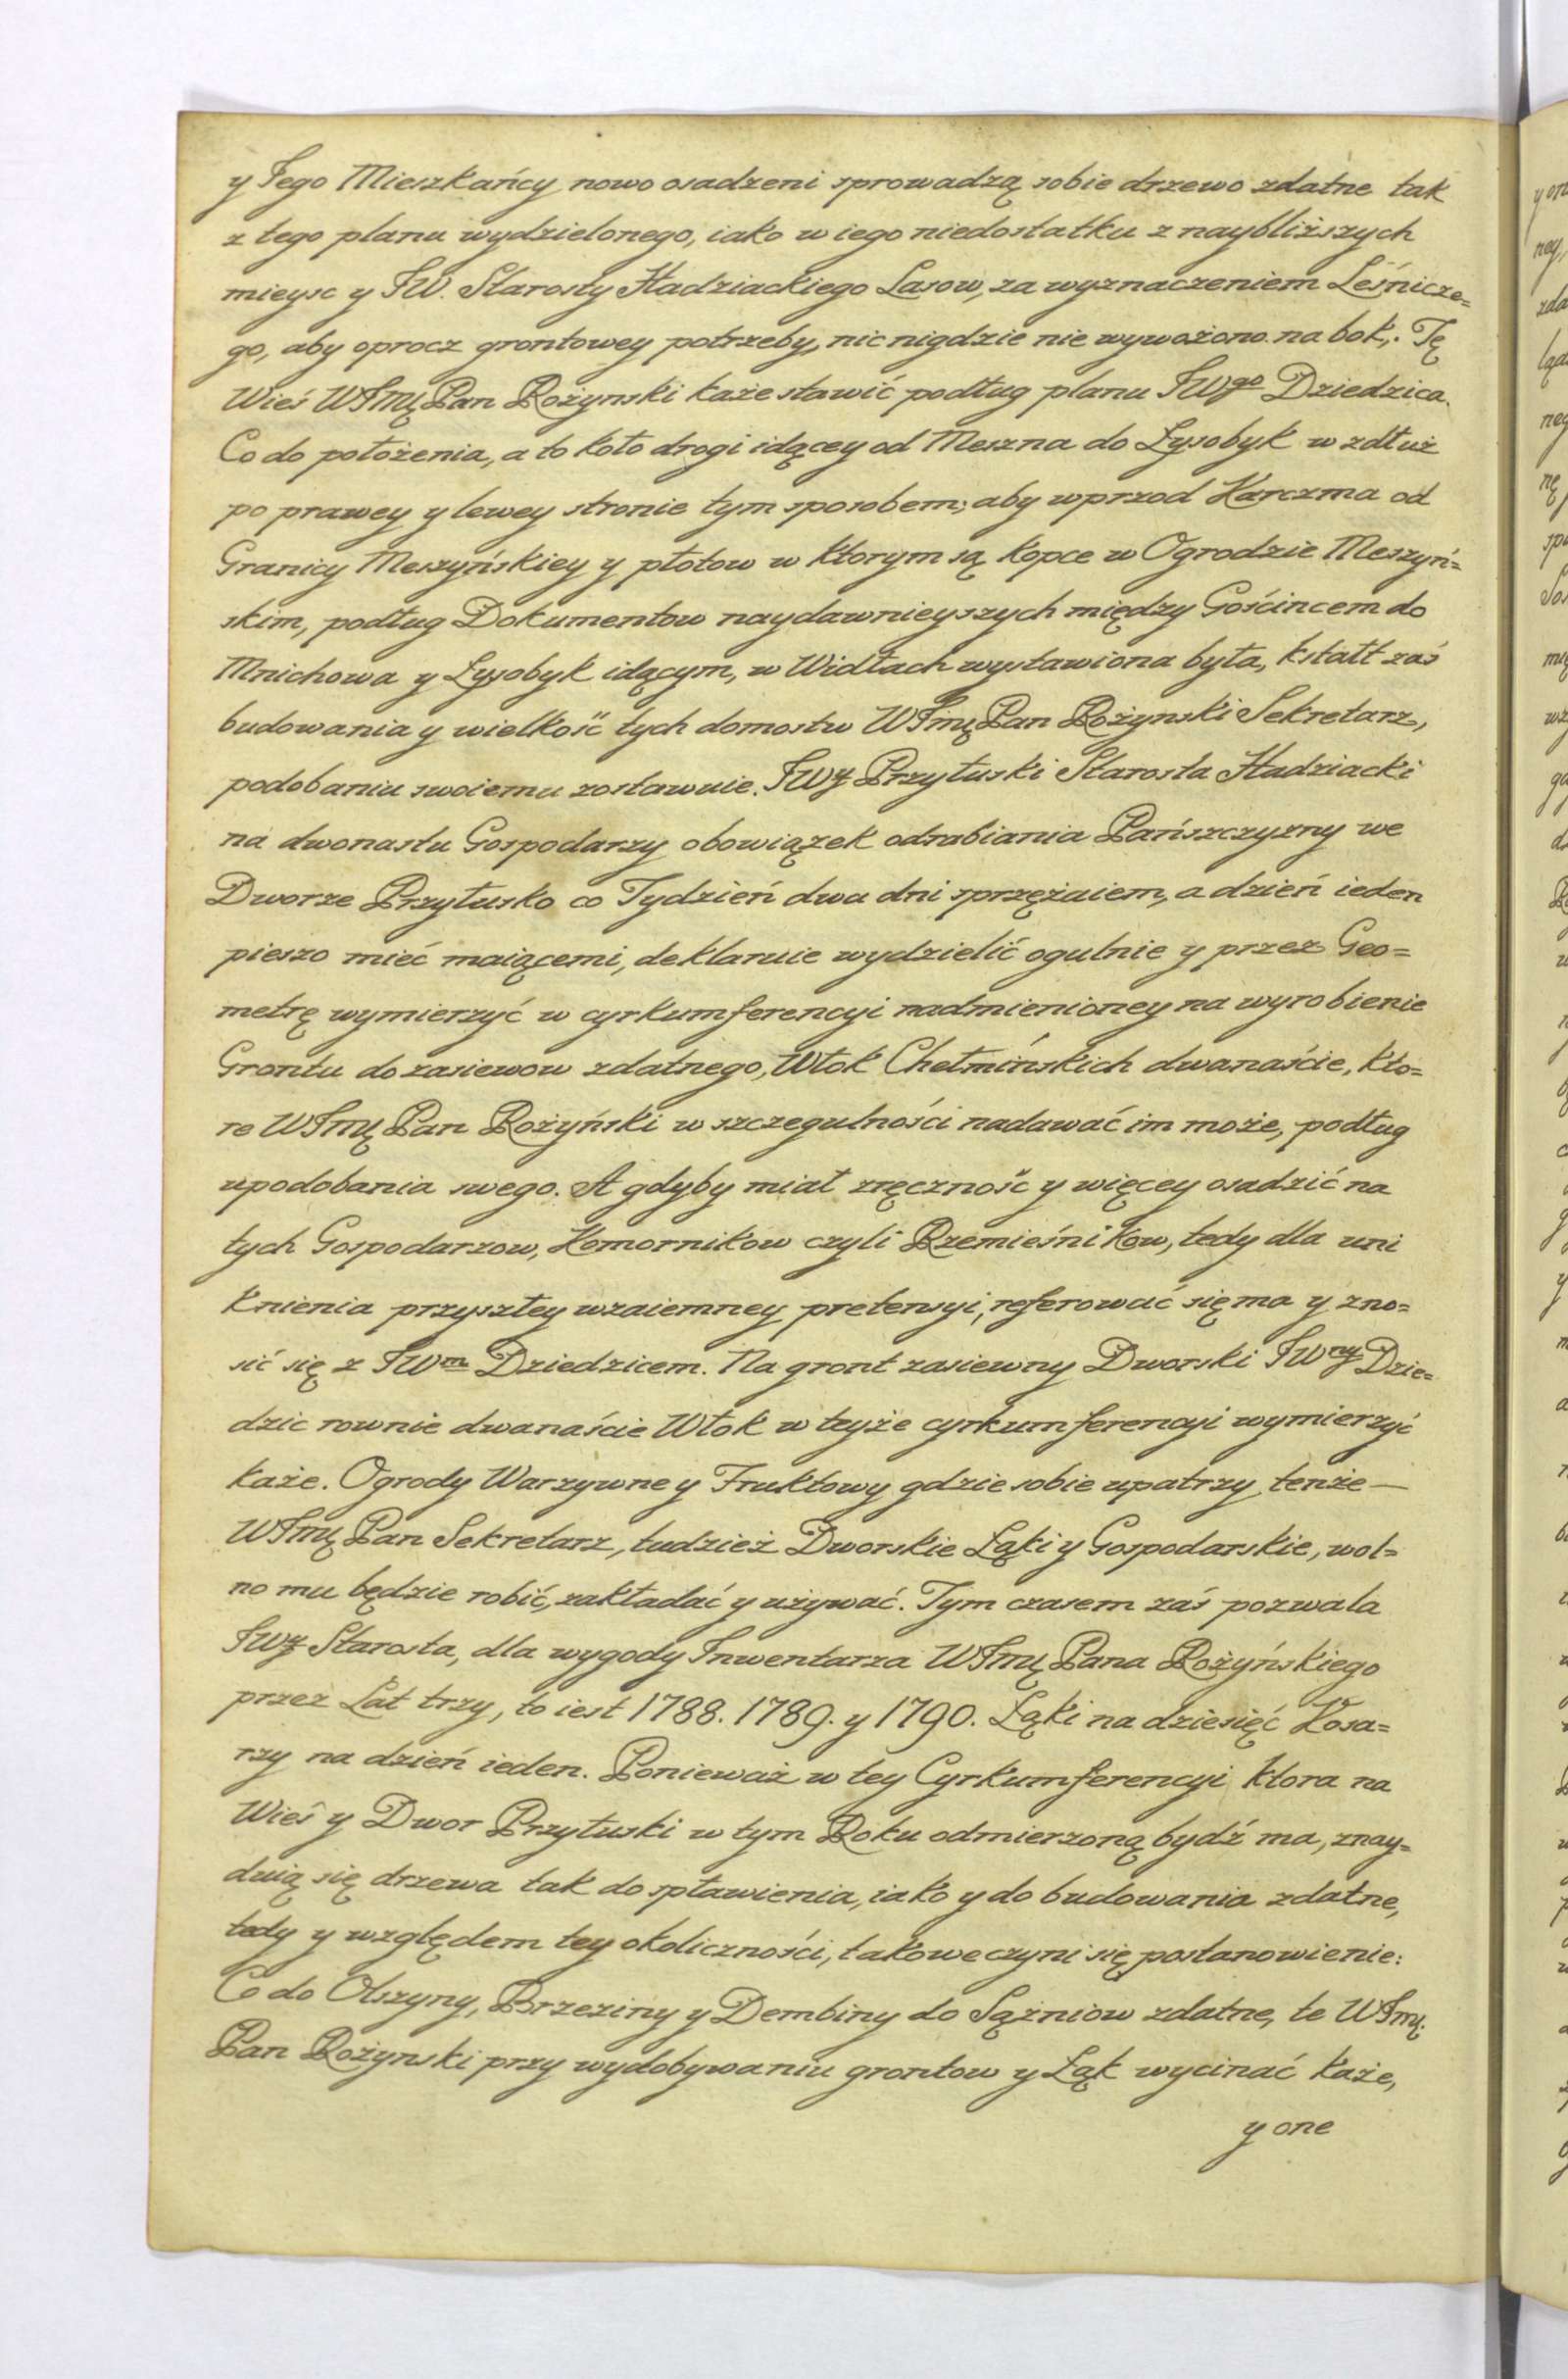 y Jego Mieszkańcy nowo osadzeni sprowadzą sobie drzewo zdatne tak
z tego planu wydzielonego, iako w iego niedostatku z naybliższych
mieysc y JW. Starosty Hadziackiego Lasow, za wyznaczeniem Leśnicze=
go, aby oprocz grontowey potrzeby, nic nigdzie nie wywożono na bok,. Tę
Wieś WJmę Pan Rożynski każe stawić podług planu JWgo Dziedzica.
Co do położenia, a to koło drogi idącey od Meszna do Łysobyk w zdłuż
po prawey y lewey stronie tym sposobem; aby wprzod Karczma od
Granicy Meszyńskiey y płotow w ktorym są kopce w Ogrodzie Meszyń=
skim, podług Dokumentow naydawnieyszych między Gościncem do
Mnichowa y Łysobyk idącym, w Widłach wystawiona była, kstałt zaś
budowania y wielkość tych domostw WJmę Pan Rożynski Sekretarz,
podobaniu swoiemu zostawuie. JWy Przyłuski Starosta Hadziacki
na dwonastu Gospodarzy obowiązek odrabiania Pańszczyzny we
Dworze Przyłusko co Tydzień dwa dni sprzężaiem, a dzień ieden
pieszo mieć maiącemi, deklaruie wydzielić ogulnie y przez Geo=
metrę wymierzyć w cyrkumferencyi nadmienioney na wyrobienie
Grontu do zasiewow zdatnego, Włok Chełmińskich dwanaście, kto=
re WJmę Pan Rożyński w szczegulności nadawać im może, podług
upodobania swego. A gdyby miał zręczność y więcey osadzić na
tych Gospodarzow, Komornikow czyli Rzemieśnikow, tedy dla uni
knienia przyszłey wzaiemney pretensyi, referować się ma y zno=
sić się z JWm Dziedzicem. Na gront zasiewny Dworski JWny Dzie=
dzic rownie dwanaście Włok w teyże cyrkumferencyi wymierzyć
każe. Ogrody Warzywne y Fruktowy gdzie sobie upatrzy tenże —
WJmę Pan Sekretarz, tudzież Dworskie Łąki y Gospodarskie, wol=
no mu będzie robić, zakładać y używać. Tym czasem zaś pozwala
JWy Starosta, dla wygody Inwentarza WJmę Pana Rożyńskiego
przez Lat trzy, to iest 1788. 1789. y 1790. Łąki na dziesięć Kosa=
rzy na dzień ieden. Ponieważ w tey Cyrkumferencyi ktora na
Wieś y Dwor Przyłuski w tym Roku odmierzoną bydź ma, znay=
duią się drzewa tak do spławienia, iako y do budowania zdatne,
tedy y względem tey okoliczności, takowe czyni się postanowienie:
Co do Olszyny, Brzeziny y Dembiny do Sążniow zdatne, te WJmę.
Pan Rożynski przy wydobywaniu grontow y Łąk wycinać każe,
y one